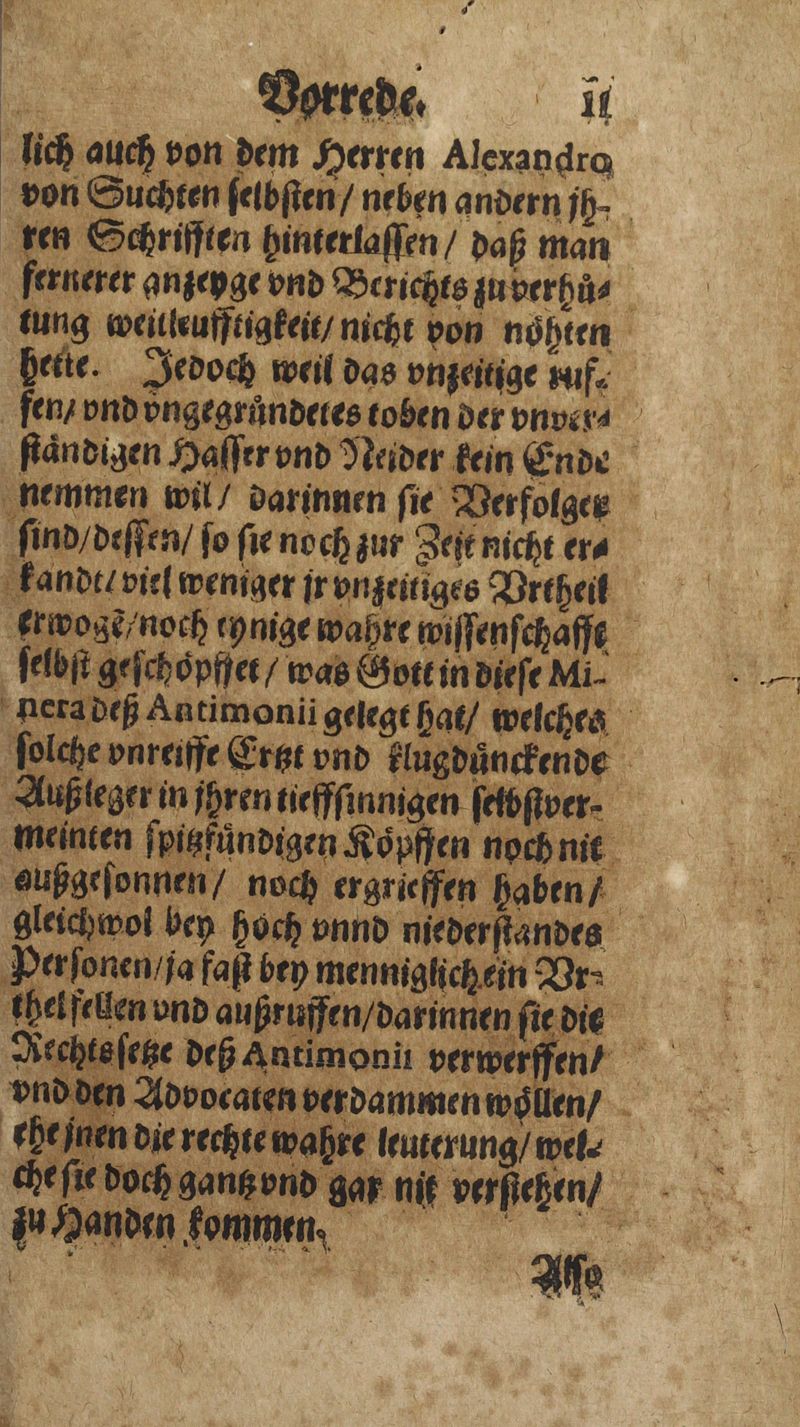 Vorrede. 11
lich auch von dem Herren Alexandro
von Suchten selbsten/ neben andern jh-
ren Schrifften hinterlassen/ daß man
fernerer anzeyge vnd Berichts zuverhů-
tung weitleufftigkeit/ nicht von nöhten
hette. Jedoch weil das vnzeitige ruf-
fen/ vnd vngegründetes toben der vnver-
ständigen Hasser vnd Neider kein Ende
nemmen wil/ darinnen sie Verfolger
sind/dessen/ so sie noch zur Zeit nicht er-
kandt/ viel weniger jr vnzeitiges Vrtheil
erwogē/noch eynige wahre wissenschafft
selbst geschöpffet/ was Gott in diese Mi-
nera deß Antimonii gelegt hat/ welches
solche vnreiffe Ertzt vnd klugdůnckende
Außleger in jhren tieffsinnigen selbstver-
meinten spitzfůndigen Köpffen noch nit
außgesonnen/ noch ergrieffen haben/
gleichwol bey hoch vnnd niederstandes
Personen/ja fast bey menniglich ein Vr-
thel fellen vnd außruffen/darinnen sie die
Rechtssetze deß Antimonii verwerffen/
vnd den Advocaten verdammen wöllen/
ehe jnen die rechte wahre leuterung/ wel-
che sie doch gantz vnd gar nit verstehen/
zu Handen kommen.
Also